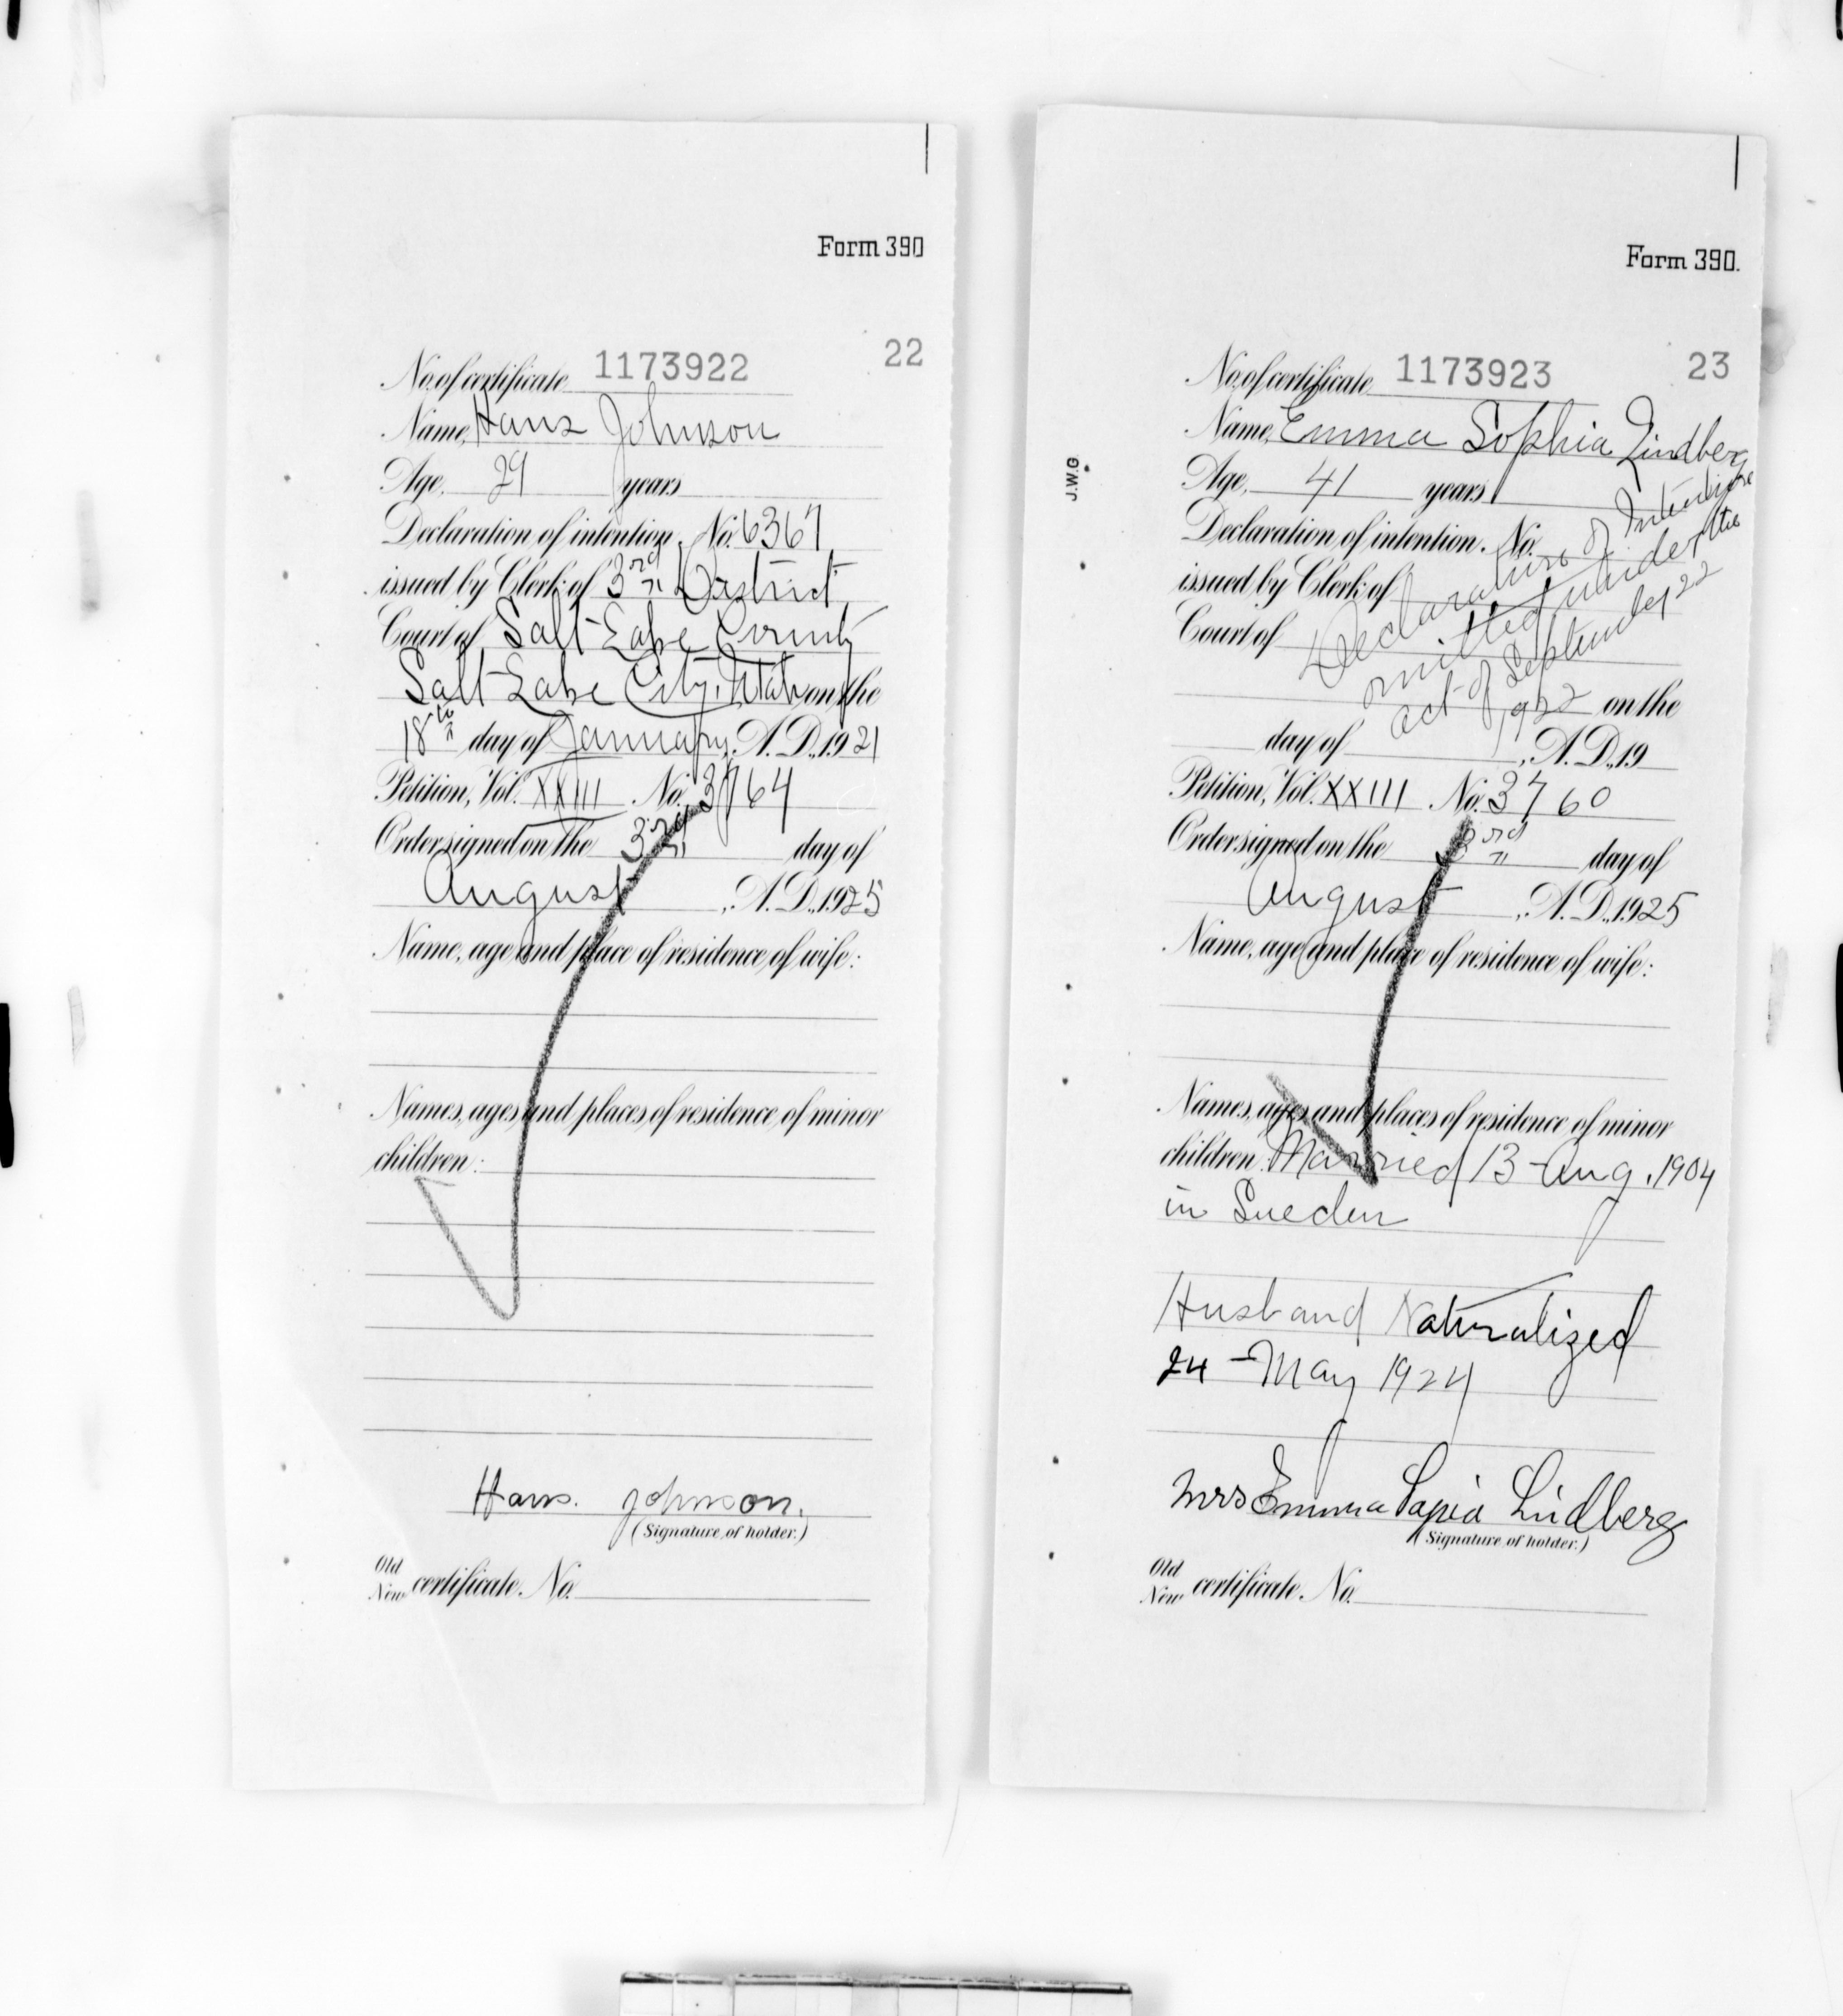 Form 390
22
No. of certificate 1173922
Name, Hans Johnson
Age, 29 years
Declaration of intention, No. 6367
issued by Clerk of 3rd District
Court of Salt Lake County
Salt Lake City, Utah on the
18th day of January, A.D., 1921
Petition, Vol. XXIII No. 3764
Order signed on the 3rd day of
August, A.D., 1925
Name, age, and place of residence of wife:
Names, ages, and places of residence of minor
children:
Hans. johnson.
(Signature of holder.)
Old
New certificate No.
Form 390.
23
J.W.G.
No. of certificate 1173923
Name, Emma Sophia Lindberg
Age, 41 years
Declaration of intention, No.
issued by Clerk of
Court of
on the
Declaration of Intention
omitted under the
act of September 22
1922
day of , A.D., 19
Petition, Vol. XXIII No. 3760
Order signed on the 3rd day of
August, A.D., 1925
Name, age, and place of residence of wife:
Names, ages, and places of residence of minor
children: Married 13 Aug. 1904
in Sweden
Husband Naturalized
24 - May 1924
Mrs Emma Sapia Lindberg
(Signature of holder.)
Old
New certificate No.